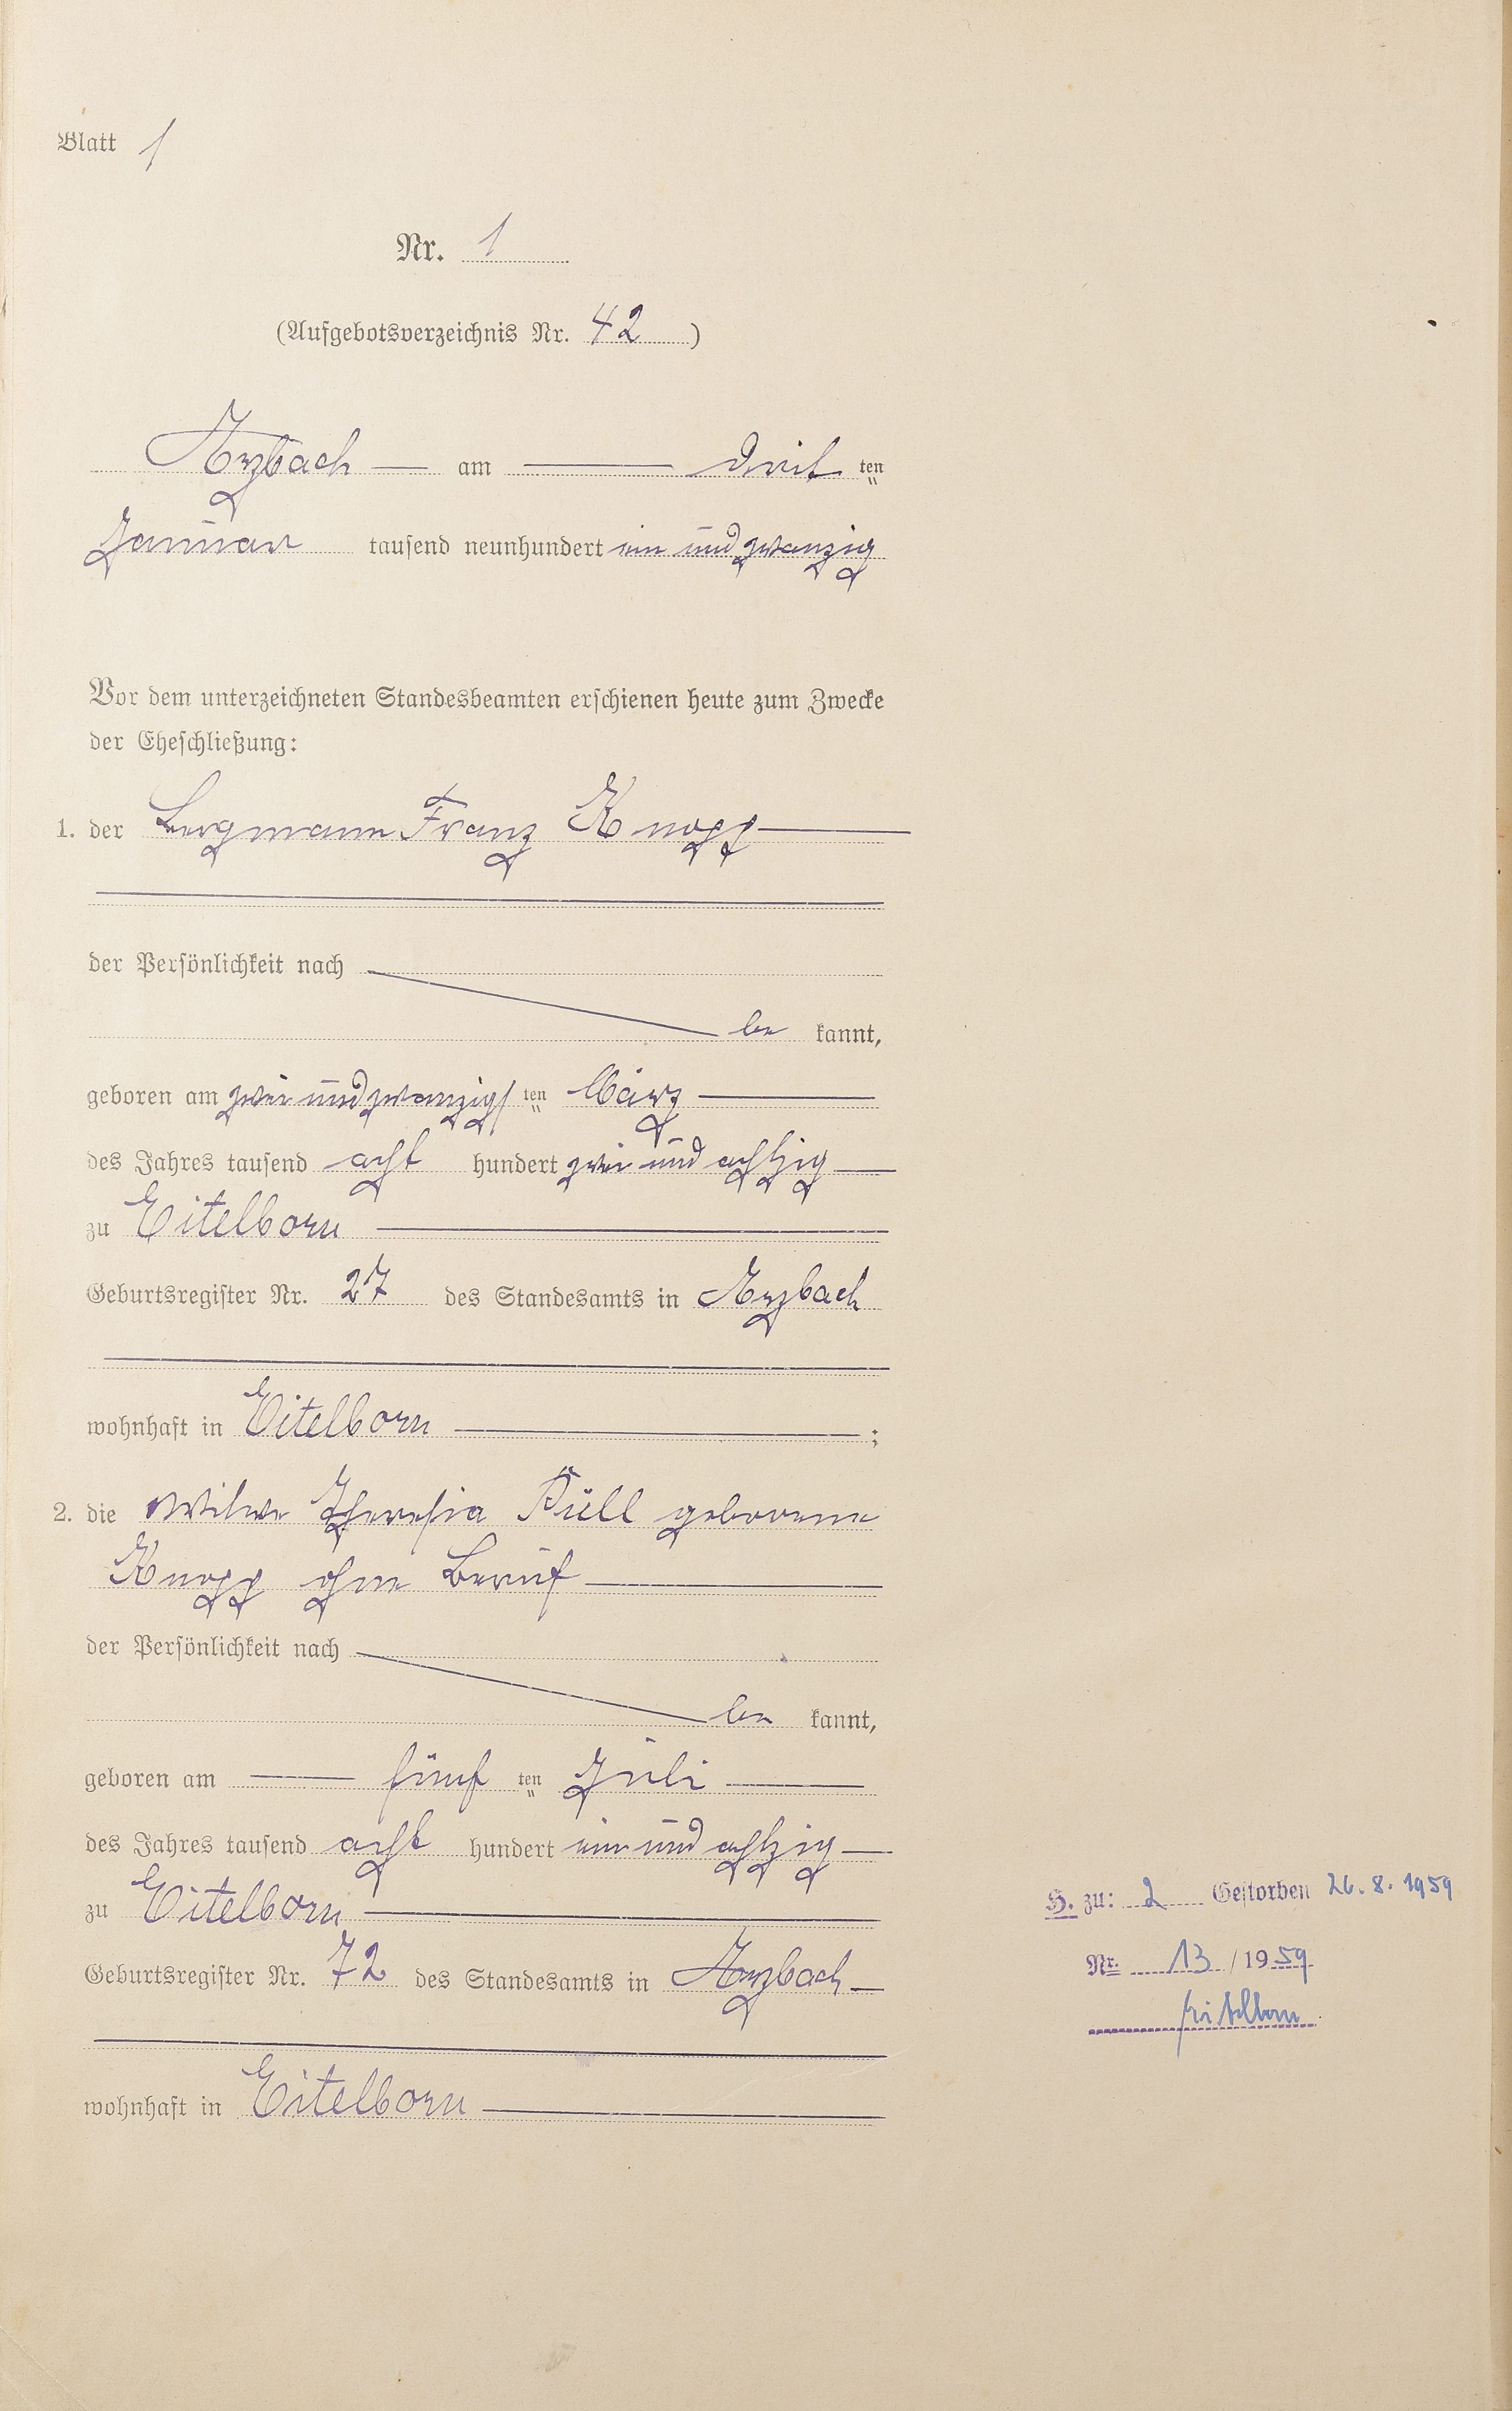 Blatt 1
Nr. 1
(Aufgebotsverzeichnis Nr. 42)
Arzbach am drit ten
Januar tausend neunhundert ein und zwanzig
Vor dem unterzeichneten Standesbeamten erschienen heute zum Zwecke
der Eheschließung:
1. der Bergmann Franz Knopp
der Persönlichkeit nach
be kannt,
geboren am zwei und zwanzigs ten März
des Jahres tausend acht hundert zwei und achtzig
zu Eitelborn
Geburtsregister Nr. 27 des Standesamts in Arzbach
wohnhaft in Eitelborn ;
2. die Witwe Theresia Püll geborene
Knopp ohne Beruf
der Persönlichkeit nach
be kannt,
geboren am fünf ten Juli
des Jahres tausend acht hundert ein und achtzig
zu Eitelborn
Geburtsregister Nr. 72 des Standesamts in Arzbach
wohnhaft in Eitelborn
H. zu: 2 Gestorben 26.8.1959
Nr. 13 / 1959
Eitelborn